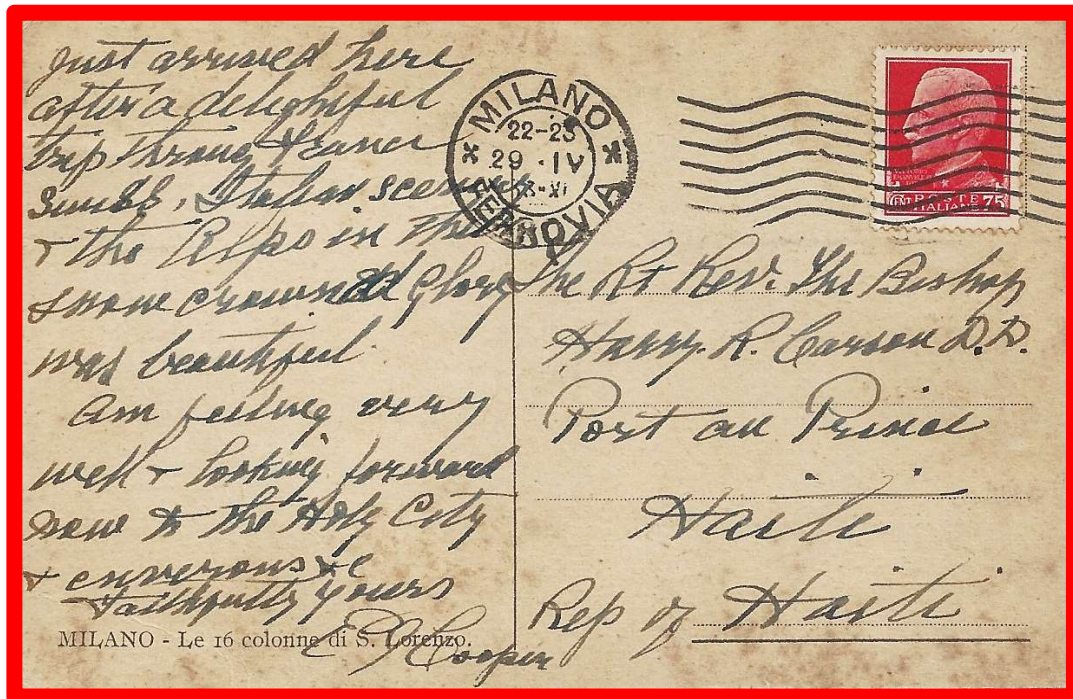 Just arrived here
after a delightful
trip throug France
Swiss, Italian scenery
+ the Alps in their
snow crownd glory
was beautiful
Am feeling very
well + looking forward
now to the Holy City
+ environs &c
Faithfully yours
Cooper
MILANO - Le 16 colonne di S. Lorenzo.
MILANO
22-23
29 · IV
XI
FERROVIA
POSTE
ITALIANE
75
The Rt Rev. The Bishop
Harry. R. Carson D.D.
Port au Prince
Haiti
Rep of Haiti